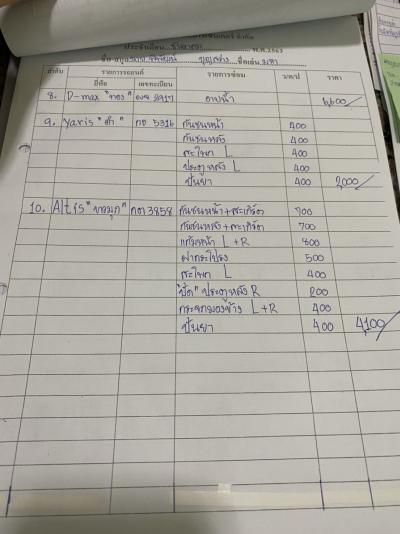 ประจำเดือน พ.ศ.2563
ชื่อ-สกุล ชื่อเล่น
ลำดับ รายการรถยนต์ รายการซ่อม บ/ท/ป ราคา
ยี่ห้อ เลขทะเบียน
8. D-max "ทอง" 2917 อาบน้ำ 6,600/
9. Yaris "ดำ" กอ 5316 กันชนหน้า 400
กันชนหลัง 400
สะโพก L 400
ประตูหลัง L 400
ปั้นยา 400 2,000/
10. Altis "ขาวมุก" 3858 กันชนหน้า+สเกิร์ต 700
กันชนหลัง+สเกิร์ต 700
แก้มหน้า L+R 800
ฝากระโปรง 500
สะโพก L 400
"ปัด" ประตูหลัง R 200
กระจกมองข้าง L+R 400
ปั้นยา 400 4,100/